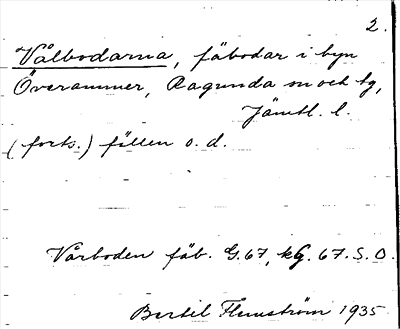 2.
Vålbodarna, fäbodar i byn
Överammer, Ragunda sn och tg,
Jämtl. l.
(forts.) fällen o. d.
Vårboden fäb. G.67, kG. 67. S. O.
Bertil Flemström 1935